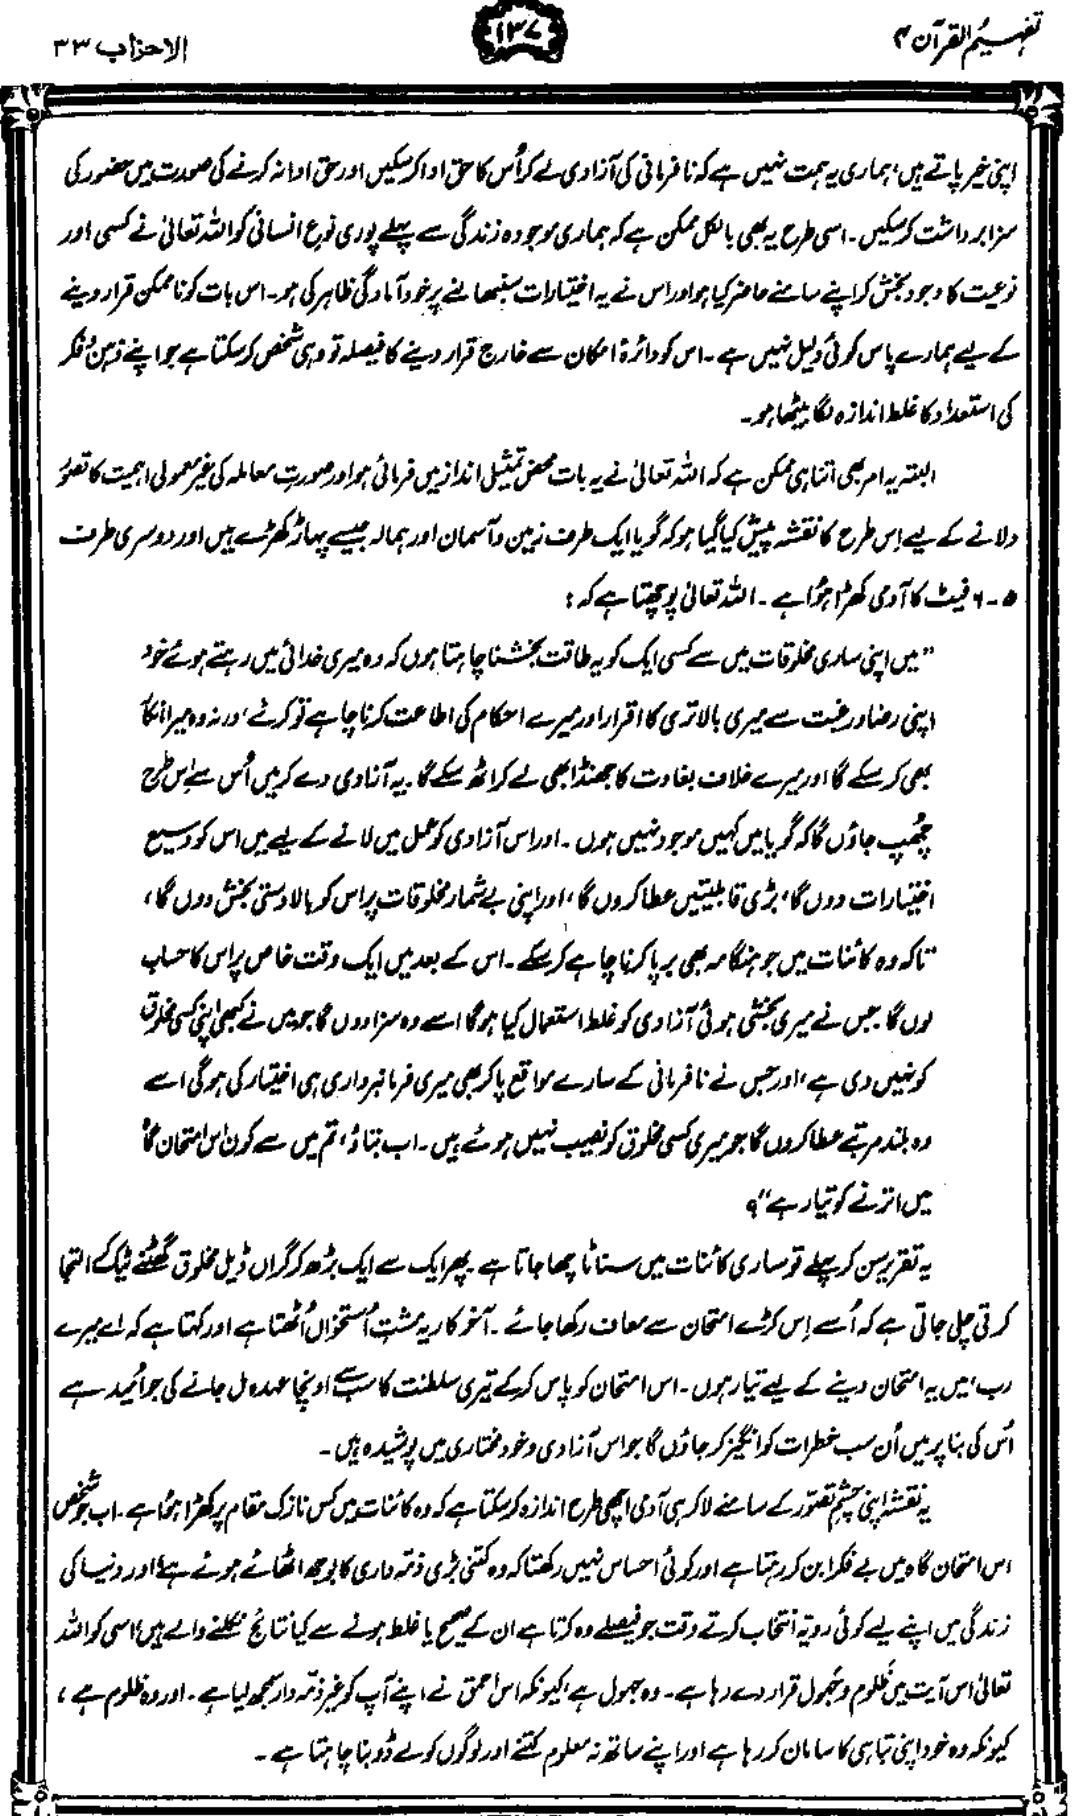 تفہیم القرآن ۴
۱۳۷
الاحزاب ۳۳
اپنی خیر پاتے ہیں، ہماری یہ ہمت نہیں ہے کہ نافرمانی کی آزادی لے کر اُس کا حق ادا کرسکیں اور حق ادا نہ کرنے کی صورت میں حضور کی
سزا برداشت کرسکیں۔ اسی طرح یہ بھی بالکل ممکن ہے کہ ہماری موجودہ زندگی سے پہلے پوری نوع انسانی کو اللہ تعالیٰ نے کسی اور
نوعیت کا وجود بخش کر اپنے سامنے حاضر کیا ہو اور اس نے یہ اختیارات سنبھالنے پر خود آمادگی ظاہر کی ہو۔ اس بات کو ناممکن قرار دینے
کے لیے ہمارے پاس کوئی دلیل نہیں ہے۔ اس کو دائرۂ امکان سے خارج قرار دینے کا فیصلہ تو وہی شخص کرسکتا ہے جو اپنے ذہن و فکر
کی استعداد کا غلط اندازہ لگا بیٹھا ہو۔
البتہ یہ امر بھی اتنا ہی ممکن ہے کہ اللہ تعالیٰ نے یہ بات محض تمثیلی انداز میں فرمائی ہو اور صورتِ معاملہ کی غیر معمولی اہمیت کا تصوّر
دلانے کے لیے اِس طرح کا نقشہ پیش کیا گیا ہو کہ گویا ایک طرف زمین و آسمان اور ہمالہ جیسے پہاڑ کھڑے ہیں اور دوسری طرف
۵-۶ فیٹ کا آدمی کھڑا ہُوا ہے۔ اللہ تعالیٰ پوچھتا ہے کہ:
"میں اپنی ساری مخلوقات میں سے کسی ایک کو یہ طاقت بخشنا چاہتا ہوں کہ وہ میری خدائی میں رہتے ہوئے خود
اپنی رضا و رغبت سے میری بالاتری کا اقرار اور میرے احکام کی اطاعت کرنا چاہے تو کرے، ورنہ وہ میرا انکار
بھی کر سکے گا اور میرے خلاف بغاوت کا جھنڈا بھی لے کر اٹھ سکے گا۔ یہ آزادی دے کر میں اُس سے اِس طرح
چھُپ جاؤں گا کہ گویا میں کہیں موجود نہیں ہوں۔ اور اس آزادی کو عمل میں لانے کے لیے میں اس کو وسیع
اختیارات دوں گا، بڑی قابلیتیں عطا کروں گا، اور اپنی بے شمار مخلوقات پر اس کو بالادستی بخش دوں گا،
تاکہ وہ کائنات میں جو ہنگامہ بھی برپا کرنا چاہے کرسکے۔ اس کے بعد میں ایک وقت خاص پر اس کا حساب
لوں گا۔ جس نے میری بخشی ہوئی آزادی کو غلط استعمال کیا ہوگا اسے وہ سزا دوں گا جو میں نے کبھی اپنی کسی مخلوق
کو نہیں دی ہے، اور جس نے نافرمانی کے سارے مواقع پا کر بھی میری فرمانبرداری ہی اختیار کی ہوگی اسے
وہ بلند مرتبے عطا کروں گا جو میری کسی مخلوق کو نصیب نہیں ہوئے ہیں۔ اب بتاؤ، تم میں سے کون اس امتحان گاہ
میں اترنے کو تیار ہے"؟
یہ تقریر سن کر پہلے تو ساری کائنات میں سناٹا چھا جاتا ہے۔ پھر ایک سے ایک بڑھ کر گراں ڈیل مخلوق گھٹنے ٹیک کے التجا
کرتی چلی جاتی ہے کہ اُسے اِس کڑے امتحان سے معاف رکھا جائے۔ آخرکار یہ مشتِ اُستخواں اُٹھتا ہے اور کہتا ہے کہ اے میرے
رب، میں یہ امتحان دینے کے لیے تیار ہوں۔ اس امتحان کو پاس کرکے تیری سلطنت کا سب سے اونچا عہدہ مل جانے کی جو اُمید ہے
اُس کی بنا پر میں اُن سب خطرات کو انگیز کر جاؤں گا جو اس آزادی و خود مختاری میں پوشیدہ ہیں۔
یہ نقشہ اپنی چشمِ تصوّر کے سامنے لا کر ہی آدمی اچھی طرح اندازہ کرسکتا ہے کہ وہ کائنات میں کس نازک مقام پر کھڑا ہُوا ہے۔ اب جو شخص
اس امتحان گاہ میں بے فکرا بن کر رہتا ہے اور کوئی احساس نہیں رکھتا کہ وہ کتنی بڑی ذمّہ داری کا بوجھ اٹھائے ہوئے ہے، اور دنیا کی
زندگی میں اپنے لیے کوئی رویّہ انتخاب کرتے وقت جو فیصلے وہ کرتا ہے ان کے صحیح یا غلط ہونے سے کیا نتائج نکلنے والے ہیں، اسی کو اللہ
تعالیٰ اس آیت میں ظَلوم و جَہول قرار دے رہا ہے۔ وہ جہول ہے، کیونکہ اس احمق نے اپنے آپ کو غیر ذمّہ دار سمجھ لیا ہے۔ اور وہ ظلوم ہے،
کیونکہ وہ خود اپنی تباہی کا سامان کر رہا ہے اور اپنے ساتھ نہ معلوم کتنے اور لوگوں کو لے ڈوبنا چاہتا ہے۔